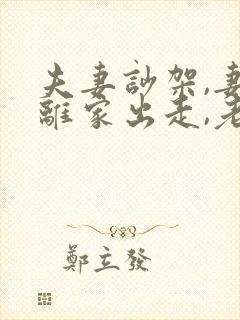 夫妻訬架,妻
離家出走,老
鄭立發